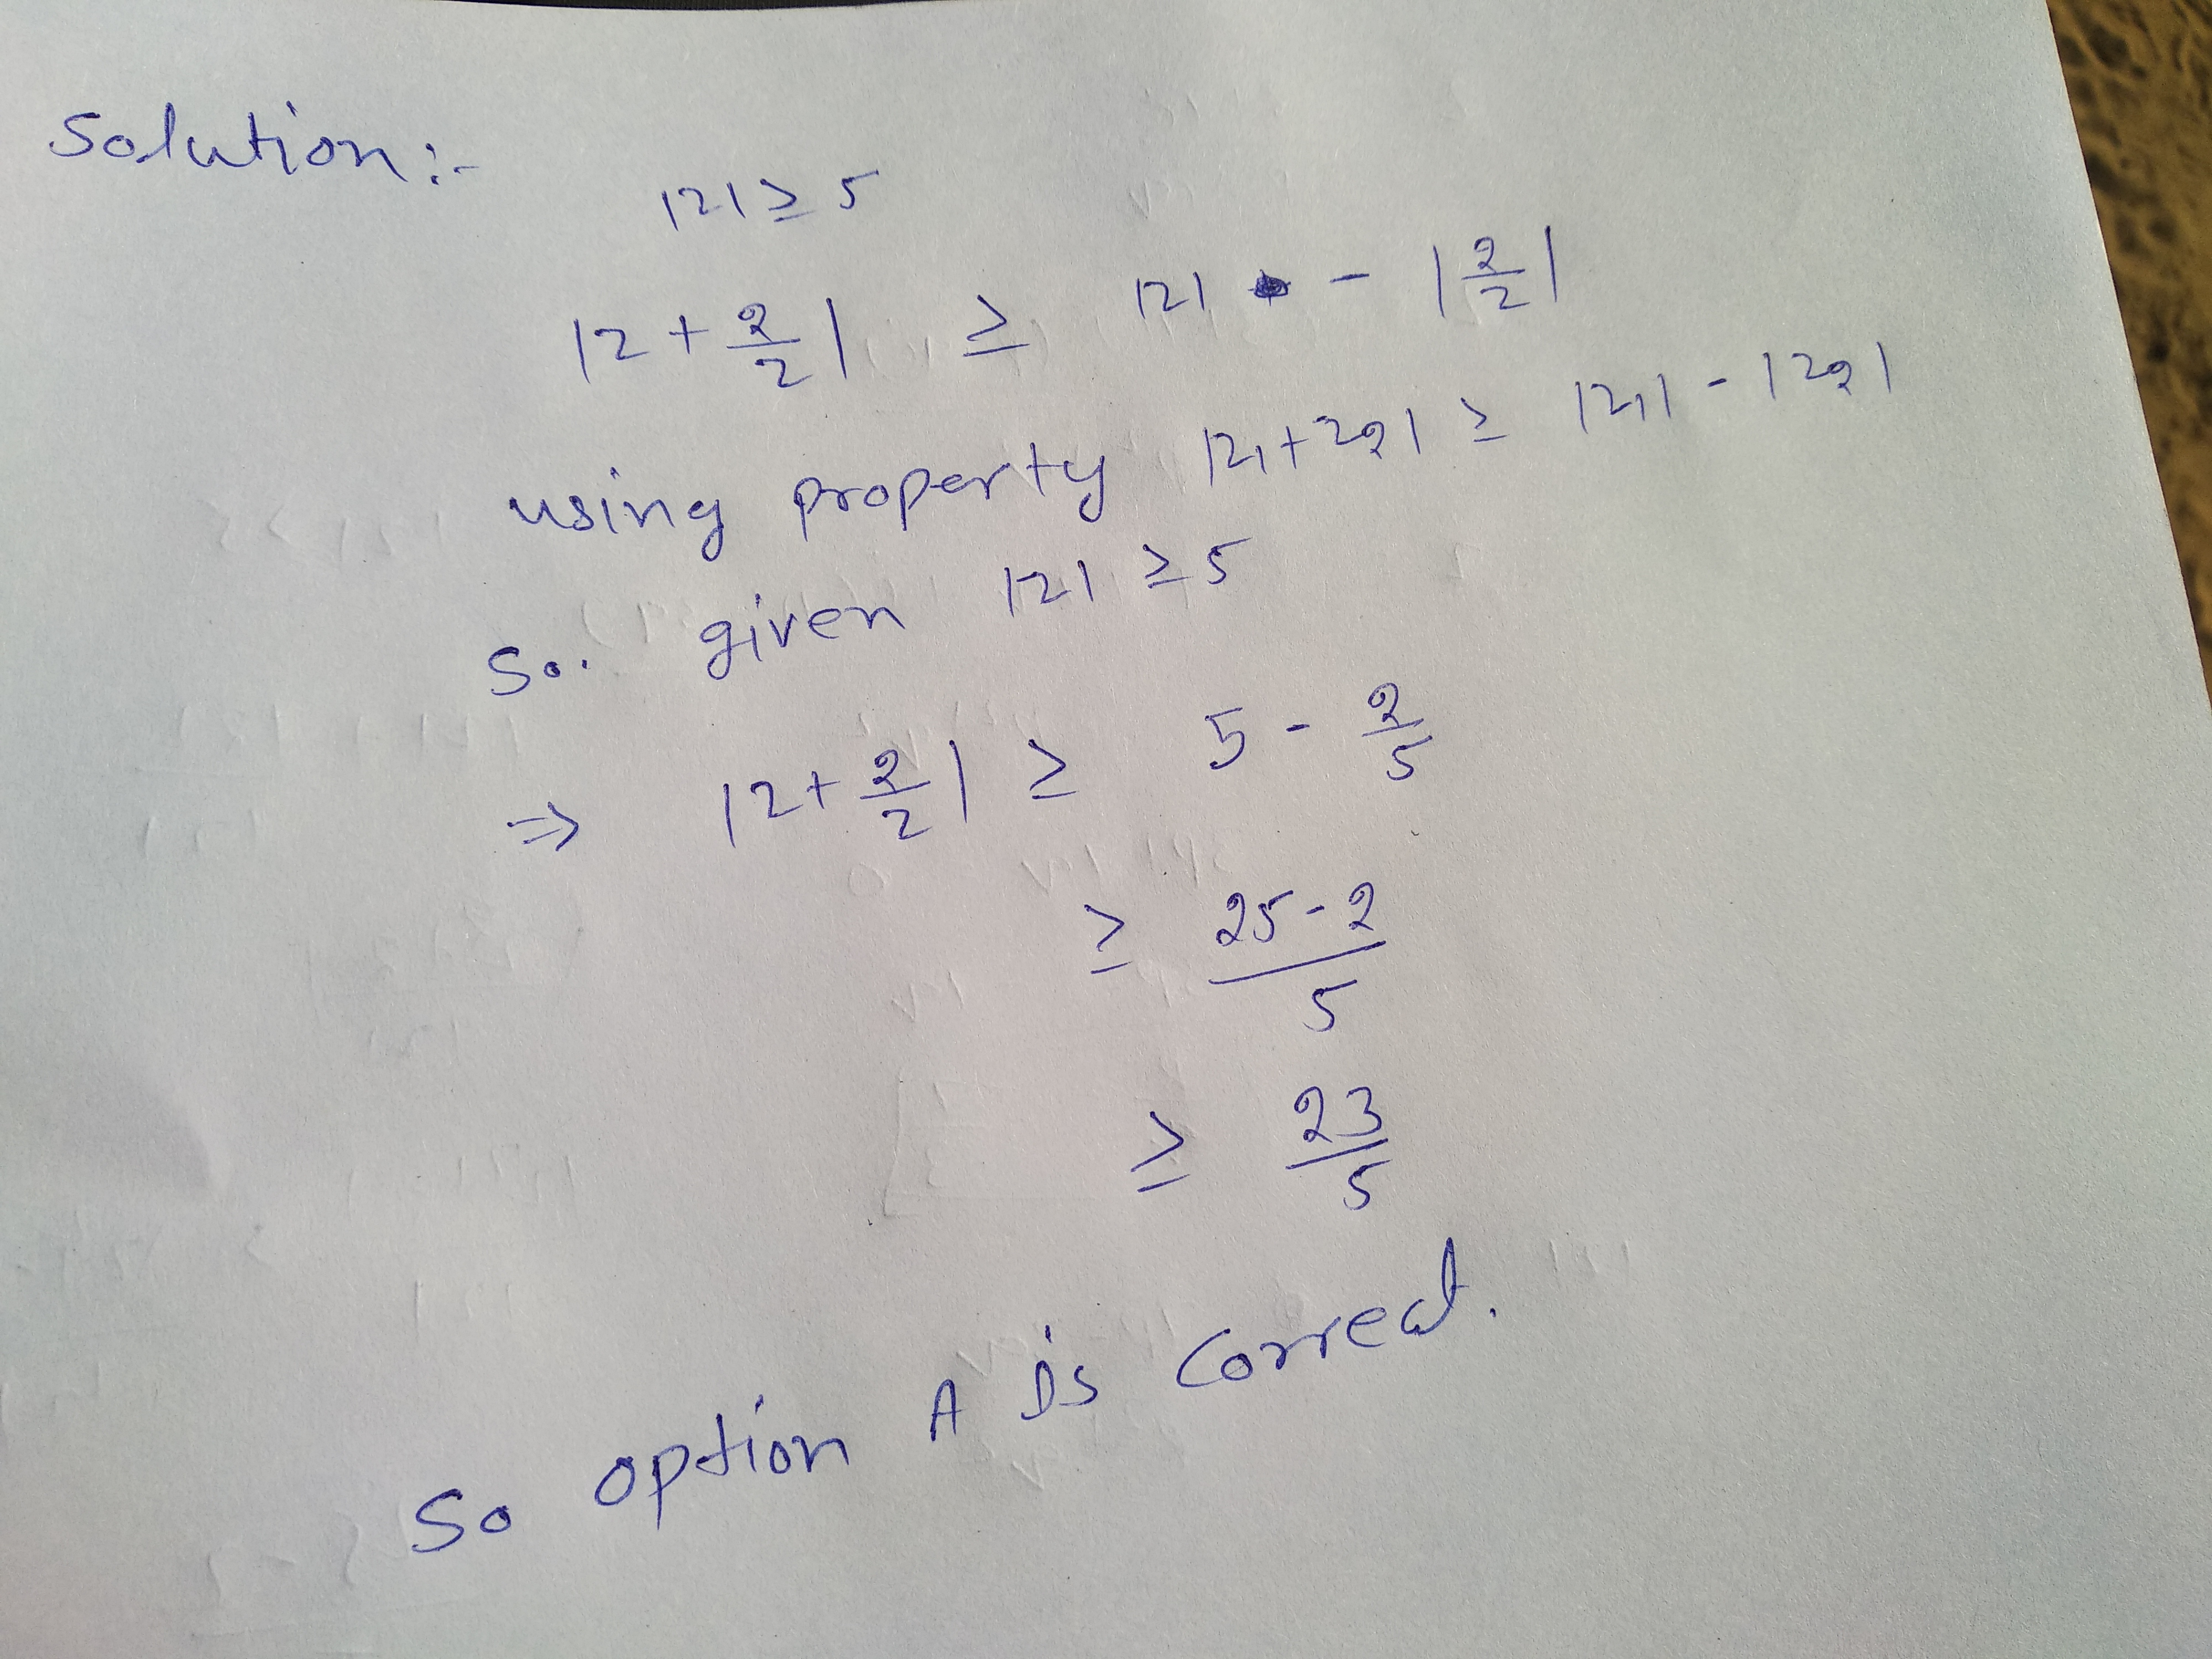 Solution:-
|z| ≥ 5
|z + 2/z| ≥ |z| - |2/z|
using property |z₁+z₂| ≥ |z₁| - |z₂|
So. given |z| ≥ 5
⇒ |z + 2/z| ≥ 5 - 2/5
≥ 25-2/5
≥ 23/5
So option A is correct.